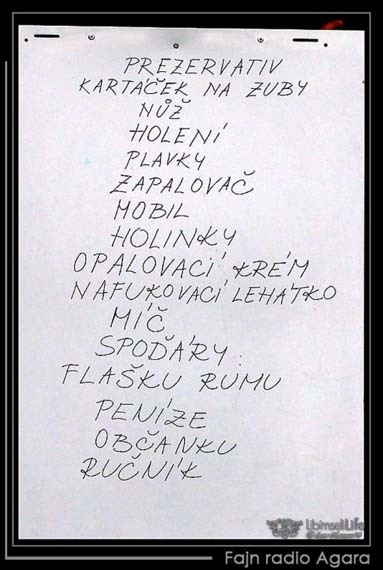 PREZERVATIV
KARTÁČEK NA ZUBY
NŮŽ
HOLENÍ
PLAVKY
ZAPALOVAČ
MOBIL
HOLINKY
OPALOVACÍ KRÉM
NAFUKOVACÍ LEHÁTKO
MÍČ
SPOĎÁRY.
FLAŠKU RUMU
PENÍZE
OBČANKU
RUČNÍK
LibimsetiLife
Fajn radio Agara